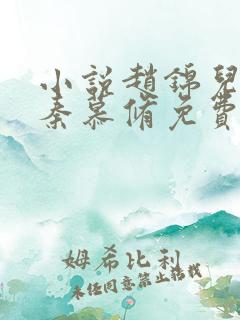 小說趙錦兒
秦慕脩免費
姆希比利
未经同意禁止转载